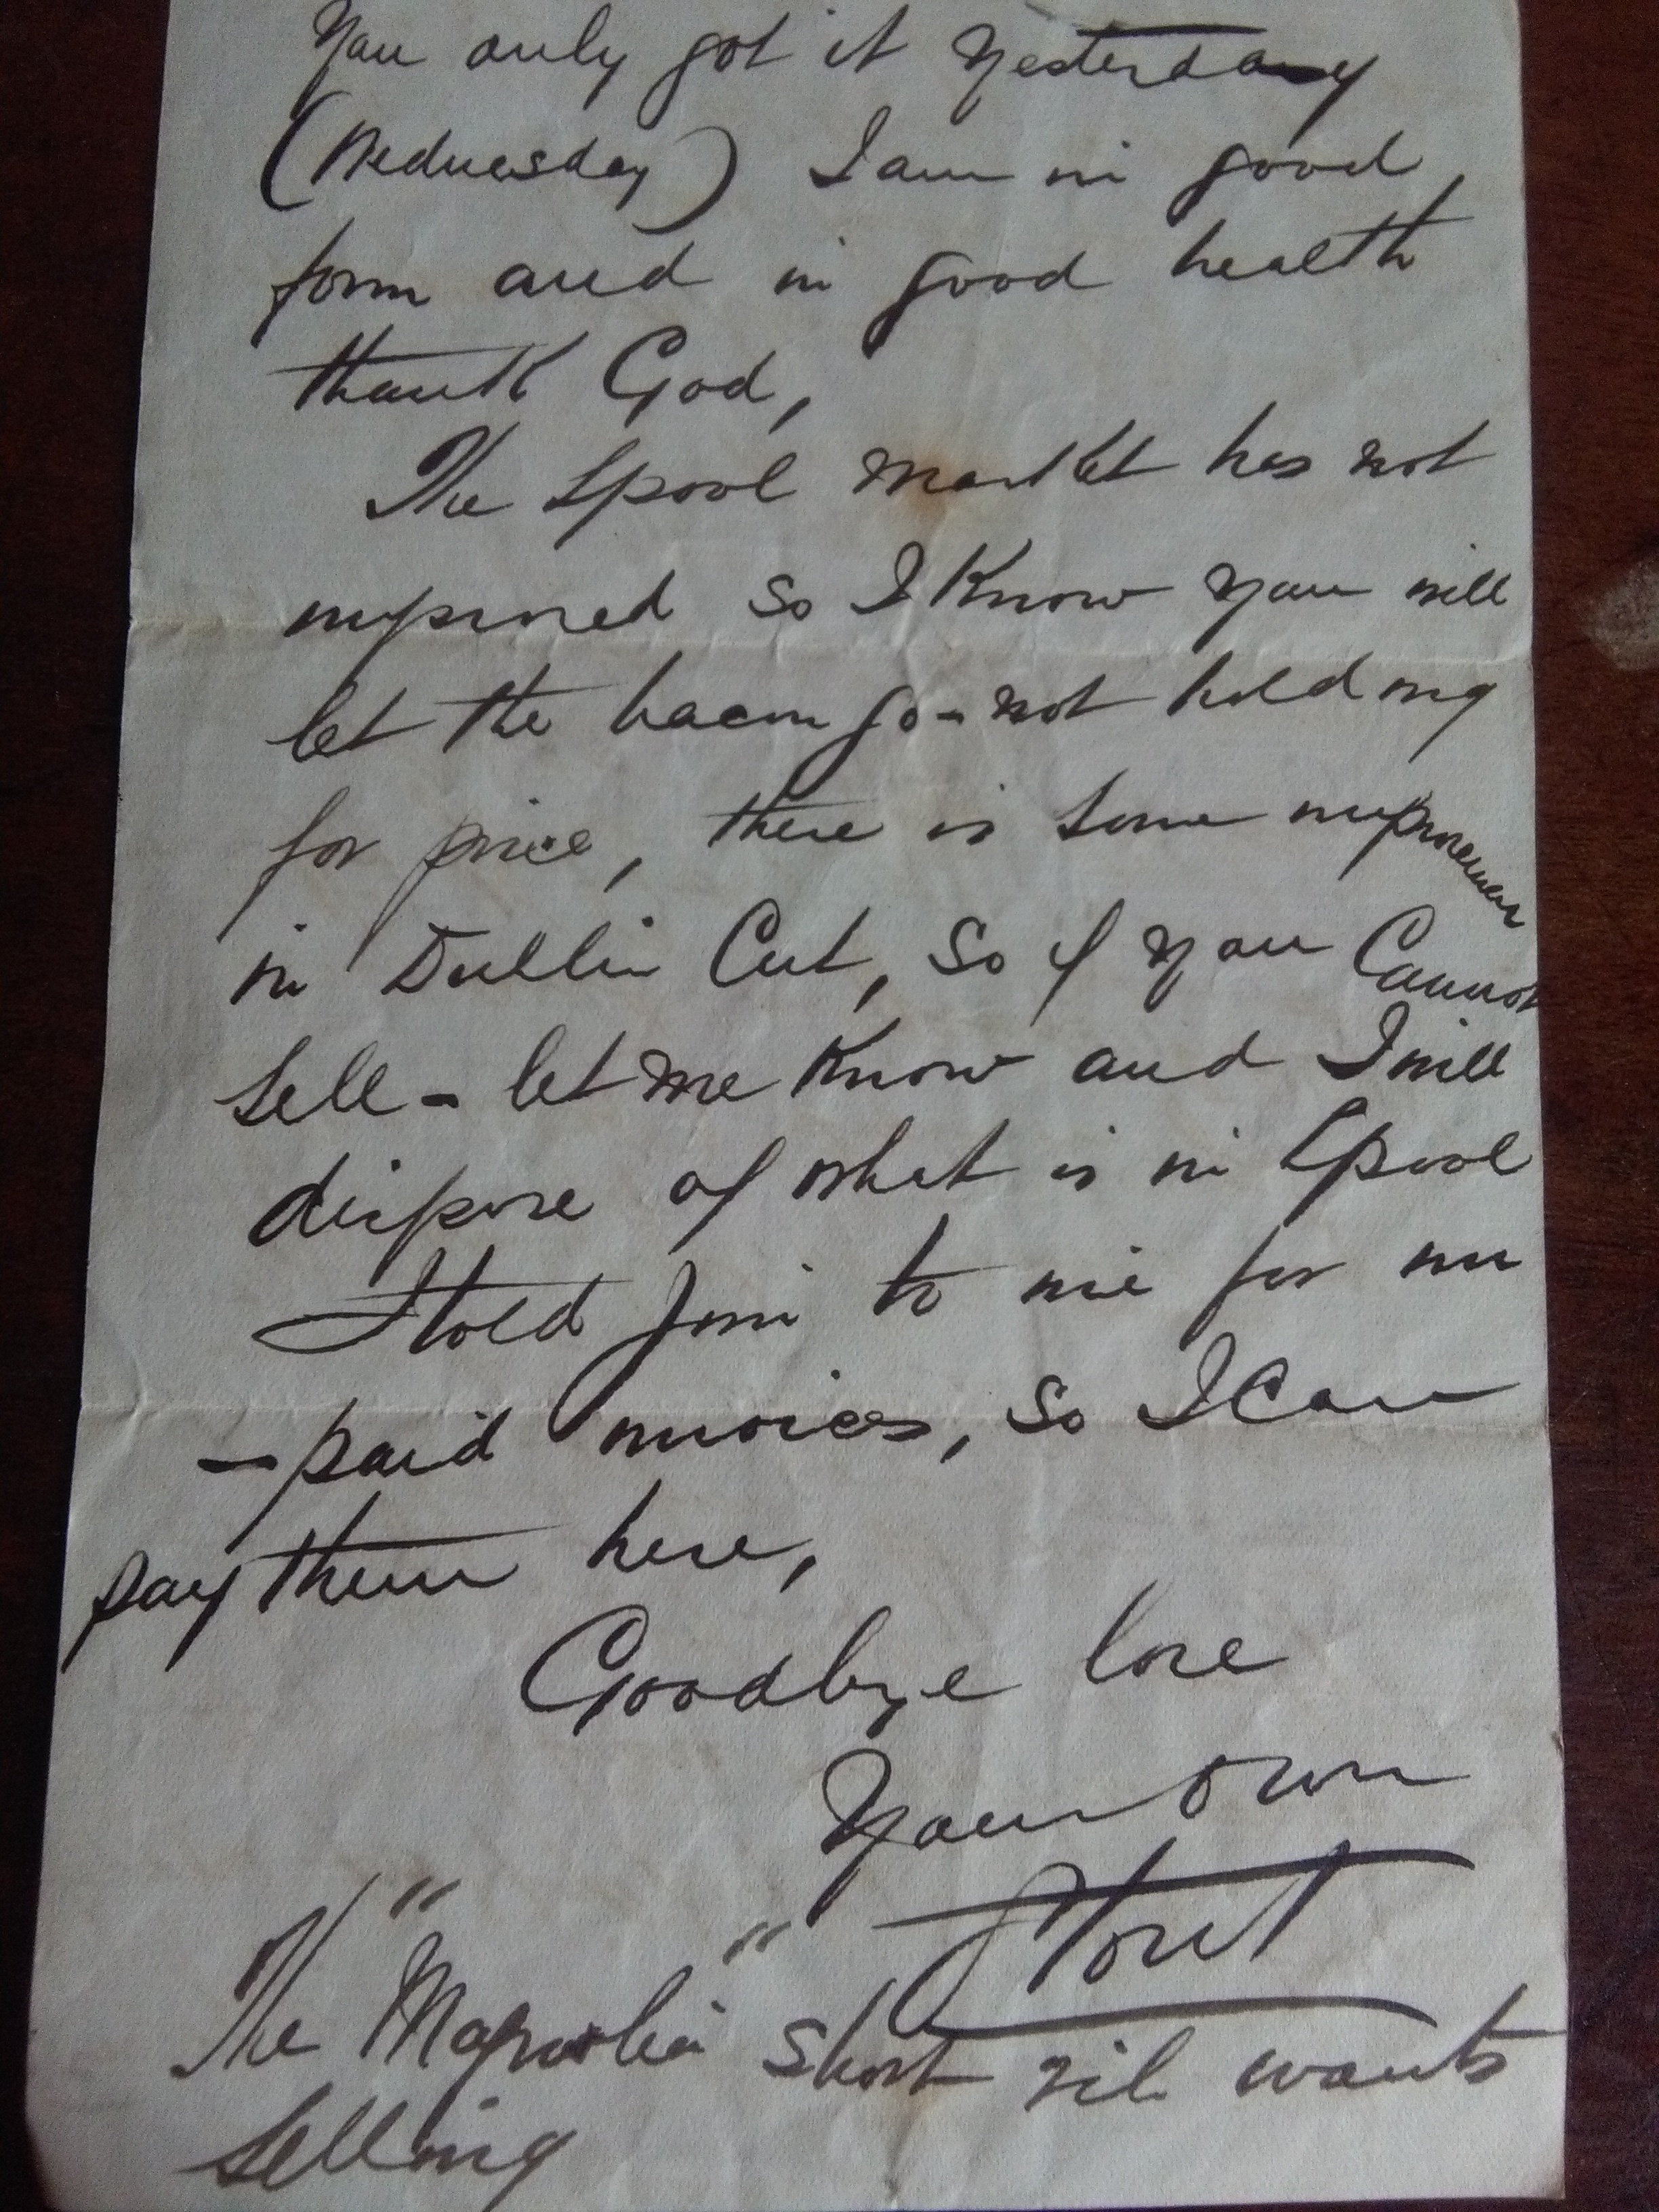 You only got it yesterday
(Wednesday) I am in good
form and in good health
thank God,
The Lpool market has not
improved so I know you will
let the bacon go - not holding
for price, there is some improvement
in Dublin Cut, So if you Cannot
Sell - let me know and I will
dispose of what is in Lpool
I told Jim to wire for un
- paid invoices, so I can
pay them here,
Goodbye love
Your own
The "Magnolia" short rib wants
Selling